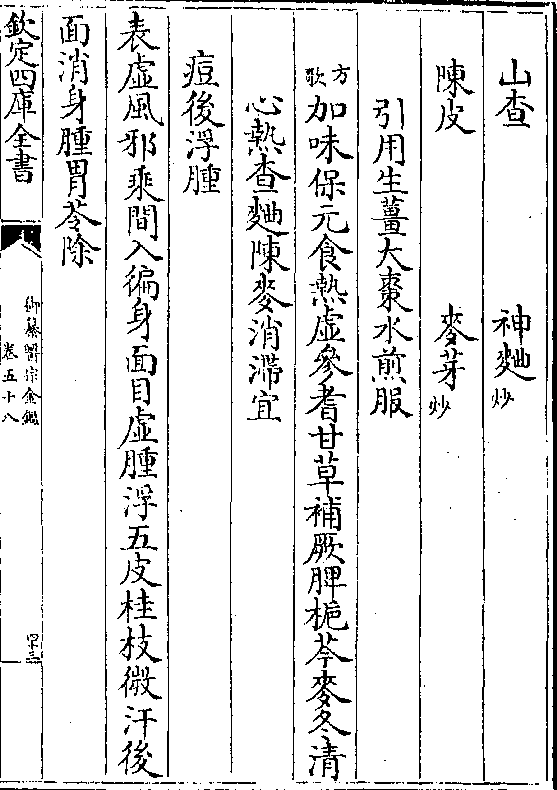 山查　神麯炒
陳皮　麥芽炒
引用生薑大棗水煎服
方歌加味保元食熱虛參耆甘草補厥脾梔芩麥冬清
心熱查麯陳麥消滯宜
痘後浮腫
表虛風邪乘間入徧身面目虛腫浮五皮桂枝微汗後
面消身腫胃苓除
欽定四庫全書
御纂醫宗金鑑
卷五十八
四十三